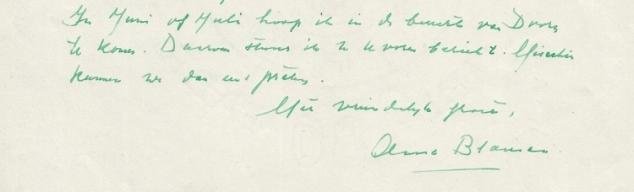 In Juni of Juli hoop ik in de buurt van Doorn
te komen. Daarvan stuur ik U te voren bericht. Misschien
kunnen we dan eens praten.
Met vriendelijke groet,
Anna Blaman